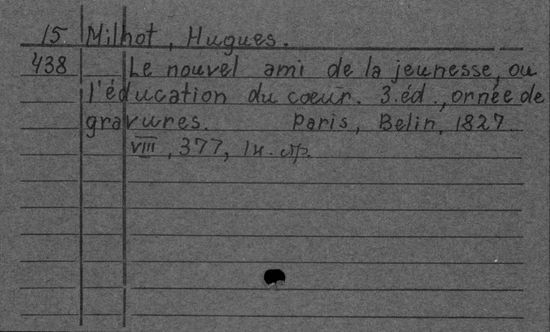 15 Milhot, Hugues.
438 Le nouvel ami de la jeunesse, ou
l'éducation du coeur. 3.éd., ornée de
gravures. Paris, Belin, 1827.
VIII, 377, 1н. стр.